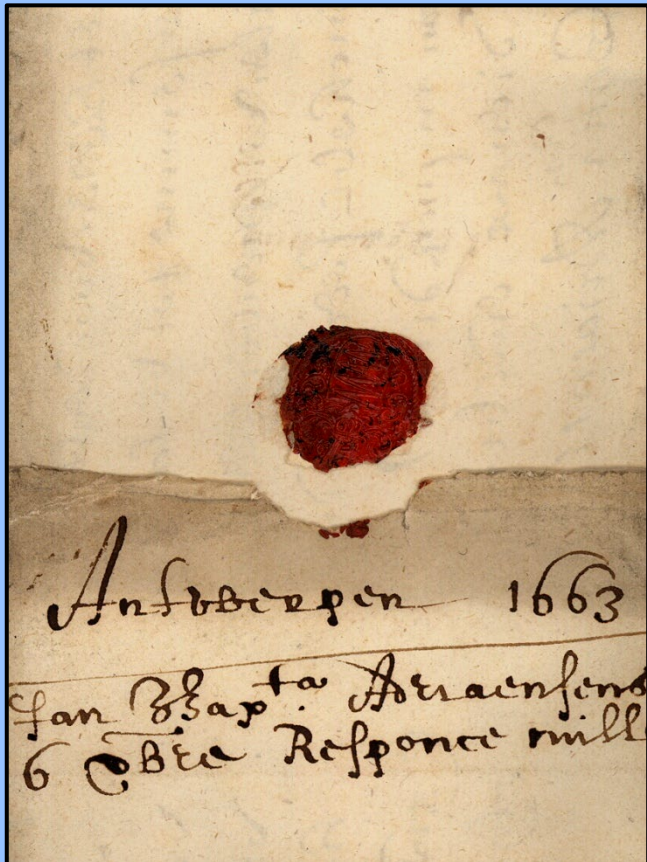 Antwerpen 1663
Jan Bap^ta Adriaensens
6 Responce